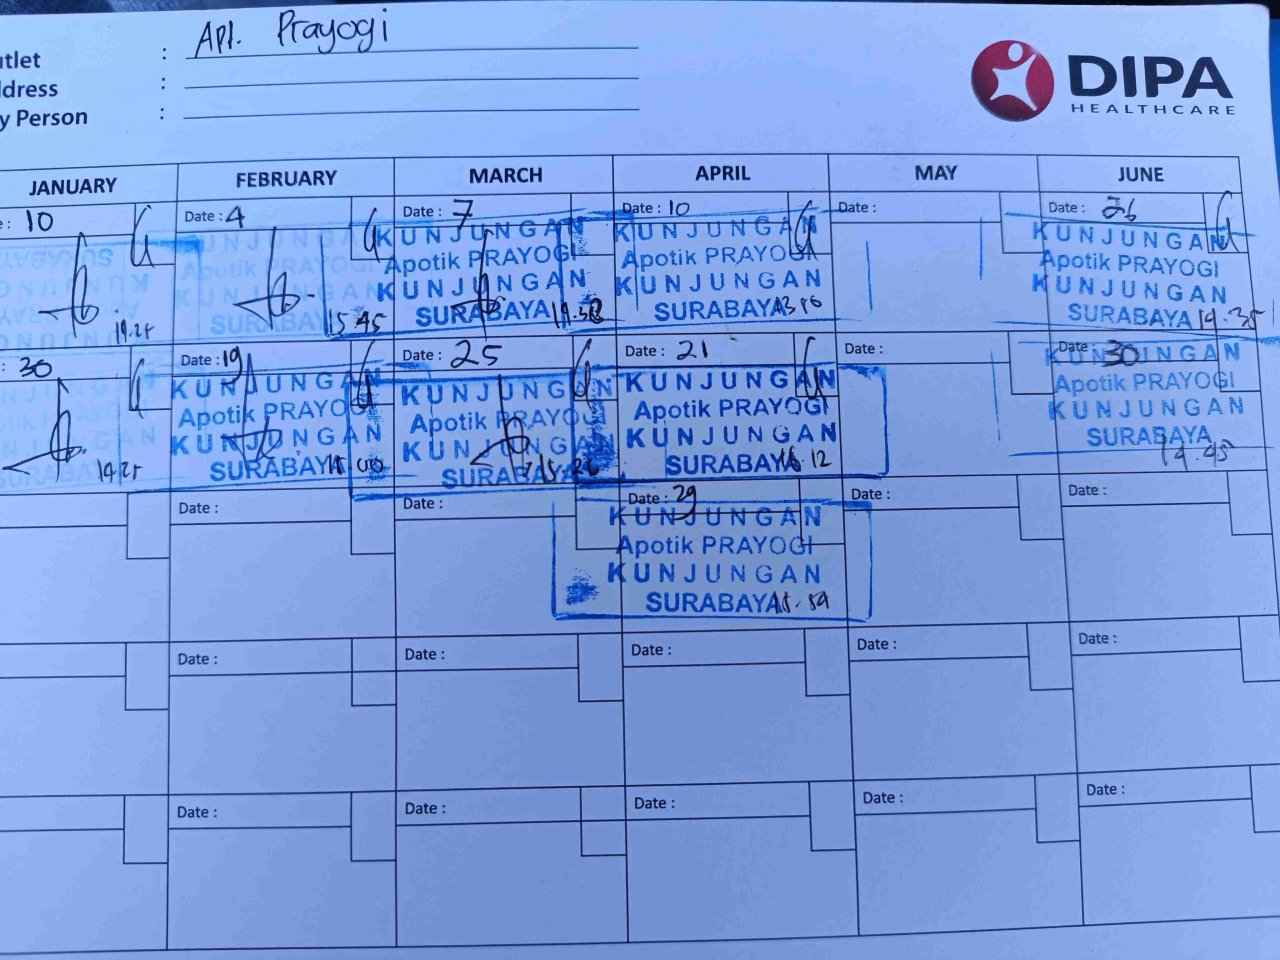 utlet : Apt. Prayogi
ddress :
y Person :
DIPA
HEALTHCARE
JANUARY FEBRUARY MARCH APRIL MAY JUNE
: 10 Date : 4 Date : 7 Date : 10 Date : Date : 26
KUNJUNGAN KUNJUNGAN KUNJUNGAN KUNJUNGAN
Apotik PRAYOGI Apotik PRAYOGI Apotik PRAYOGI Apotik PRAYOGI
KUNJUNGAN KUNJUNGAN KUNJUNGAN KUNJUNGAN
SURABAYA SURABAYA SURABAYA SURABAYA
19.25 15.45 13.16 14.35
: 30 Date : 19 Date : 25 Date : 21 Date : Date : 30
KUNJUNGAN KUNJUNGAN KUNJUNGAN KUNJUNGAN
Apotik PRAYOGI Apotik PRAYOGI Apotik PRAYOGI Apotik PRAYOGI
KUNJUNGAN KUNJUNGAN KUNJUNGAN KUNJUNGAN
SURABAYA SURABAYA SURABAYA SURABAYA
14.25 15.00 16.12 14.45
Date : Date : Date : 29 Date : Date :
KUNJUNGAN
Apotik PRAYOGI
KUNJUNGAN
SURABAYA 15.59
Date : Date : Date : Date : Date :
Date : Date : Date : Date : Date :